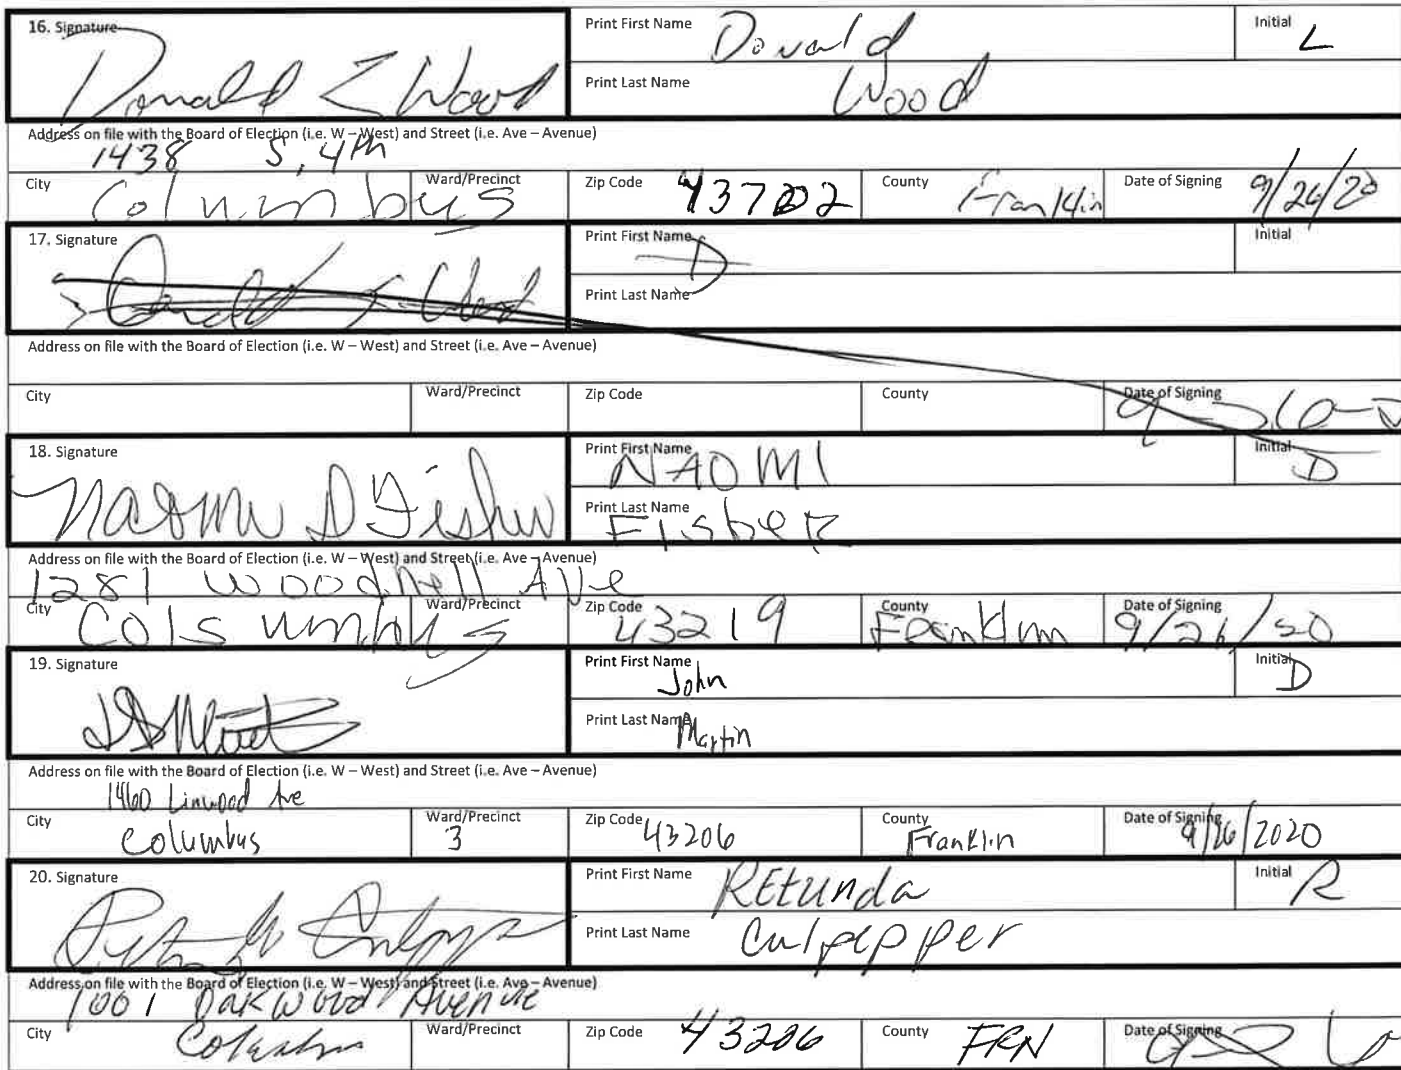 16. Signature Print First Name Donald Initial L
Donald L Wood Print Last Name Wood
Address on file with the Board of Election (i.e. W – West) and Street (i.e. Ave – Avenue)
1438 S, 4th
City Columbus Ward/Precinct Zip Code 43702 County Franklin Date of Signing 9/26/20
17. Signature Print First Name D Initial
Print Last Name
Address on file with the Board of Election (i.e. W – West) and Street (i.e. Ave – Avenue)
City Ward/Precinct Zip Code County Date of Signing
18. Signature Print First Name NAOMI Initial D
Naomi D Fisher Print Last Name Fisher
Address on file with the Board of Election (i.e. W – West) and Street (i.e. Ave – Avenue)
1281 Woodnell Ave
City Ward/Precinct Zip Code 43219 County Date of Signing 9/26/20
19. Signature Print First Name John Initial D
Print Last Name Martin
Address on file with the Board of Election (i.e. W – West) and Street (i.e. Ave – Avenue)
1460 Linwood Ave
City Columbus Ward/Precinct 3 Zip Code 43206 County Franklin Date of Signing 9/26/2020
20. Signature Print First Name REtunda Initial R
Print Last Name Culpepper
Address on file with the Board of Election (i.e. W – West) and Street (i.e. Ave – Avenue)
1001 Oakwood Avenue
City Ward/Precinct Zip Code 43206 County FRN Date of Signing